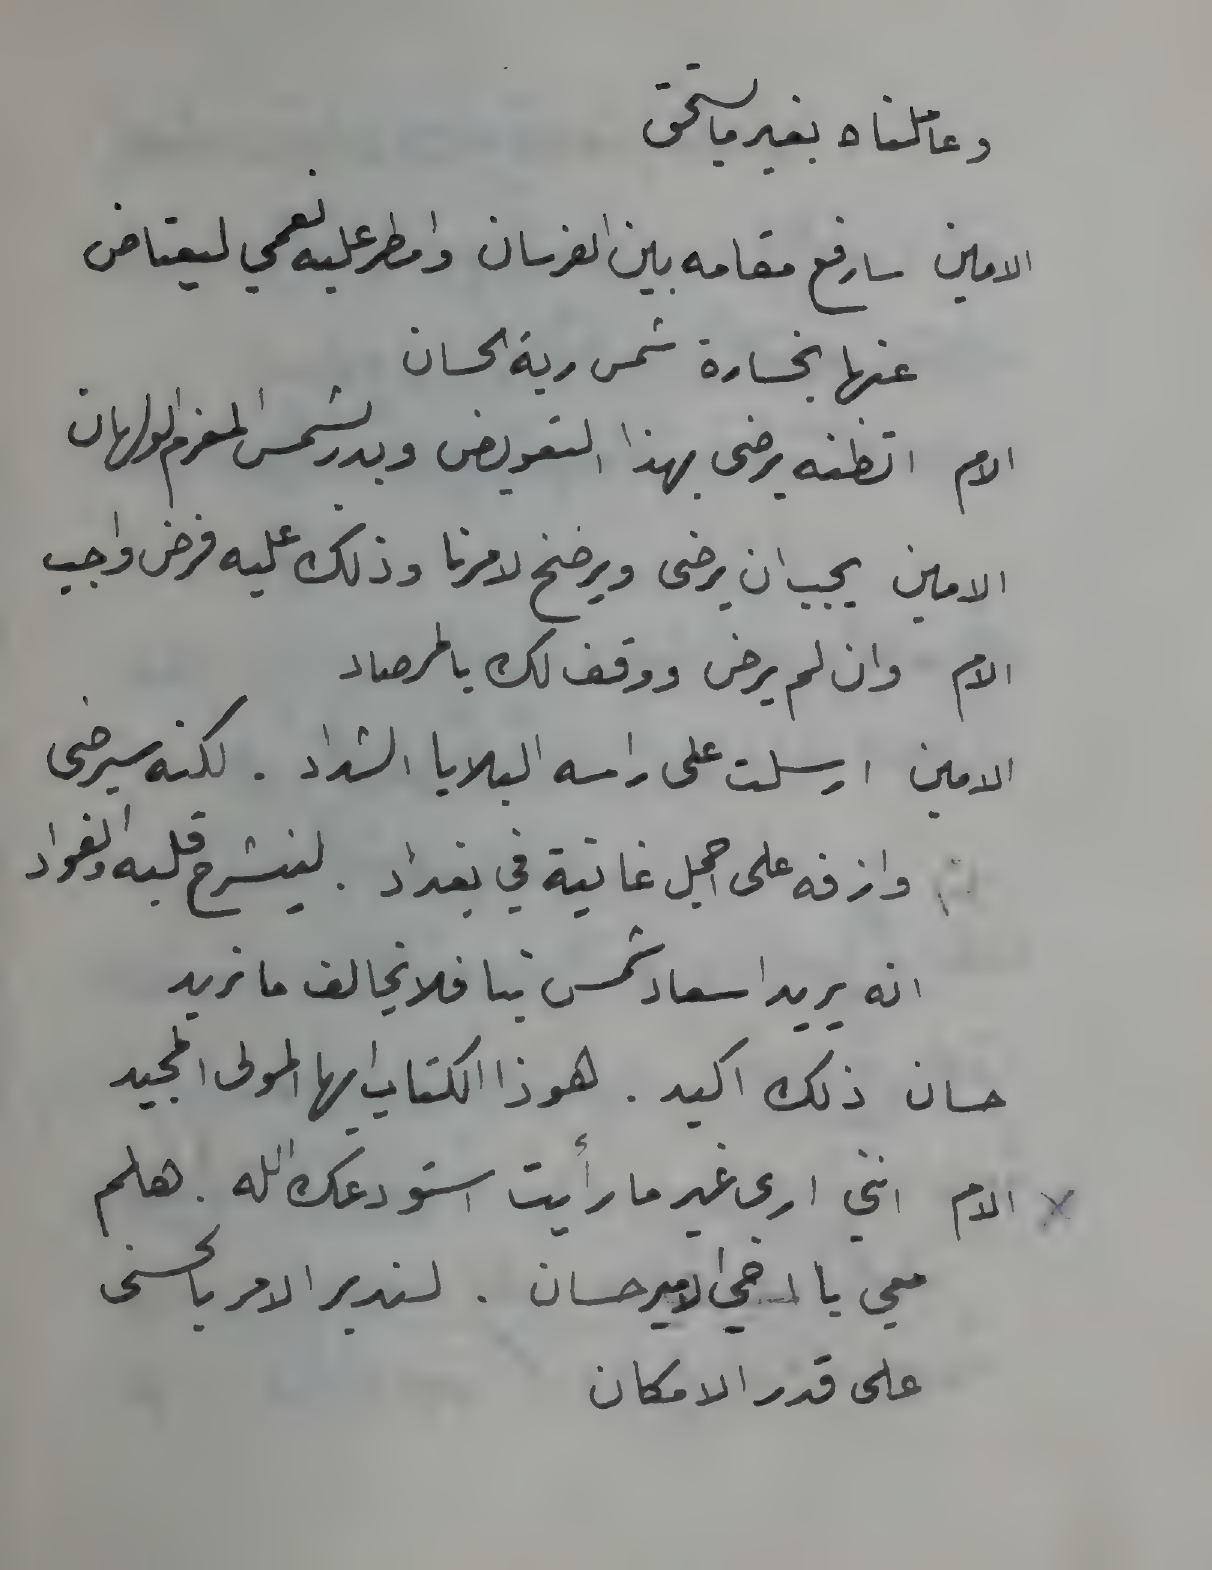 وعاملناه بغير ما يستحق
الامين سارفع مقامه بين الفرسان وامطر عليه نعمي ليعتاض
عنها بخسارة شمس ربة الحسان
الام اتظنه يرضى بهذا التعويض وبدر شمس المغرم الولهان
الامين يجب ان يرضى ويرضخ لامرنا وذلك عليه فرض واجب
الام وان لم يرض ووقف لك بالمرصاد
الامين ارسلت على راسه البلايا الشداد . لكنه سيرضى
وازفه على اجمل غانية في بغداد . لينشرح قلبه والفواد
انه يريد اسعاد شمس بنا فلا نخالف ما نريد
حسان ذلك اكيد . هوذا الكتاب ايها المولى المجيد
الام انني ارى غير ما رأيت استودعك الله . هلم
معي يا اخي الامير حسان . لندبر الامر بالحسنى
على قدر الامكان